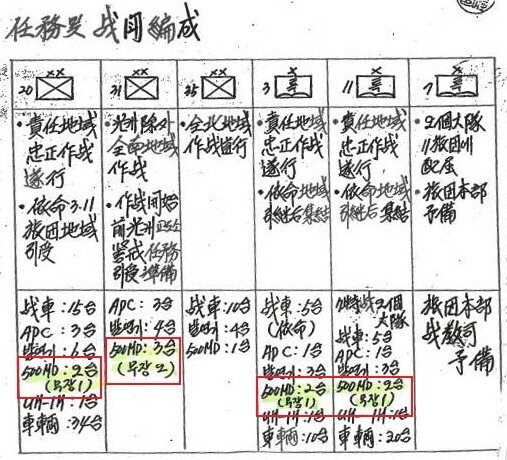 任務 및 战闘編成
XX
20
XX
31
XX
35
X
3
X
11
X
7
・責任地域
忠正作战
遂行
・依命 3.11
旅団地域
引受
・光州除外
全南地域
作战
・作战開始
前光州
警戒任務
引受準備
・全北地域
作战遂行
・責任地域
忠正作战
遂行
・依命地域
引継后集結
・責任地域
忠正作战
遂行
・依命地域
引継后集結
・2個大隊
11旅団에
配属
・旅団本部
予備
战車:15台
APC:3台
발연기:6台
500MD:2台
(무장1)
UH-1H:1台
車輌:34台
APC:3台
발연기:4台
500MD:3台
(무장2)
战車:10台
발연기:4台
500MD:1台
战車:5台
(依命)
APC:1台
발연기:3台
500MD:2台
(무장1)
UH-1H:1台
車輌:10台
特战2個
大隊
战車:5台
APC:1台
발연기:3台
500MD:2台
(무장1)
UH-1H:1台
車輌:20台
旅団本部
战教司
予備